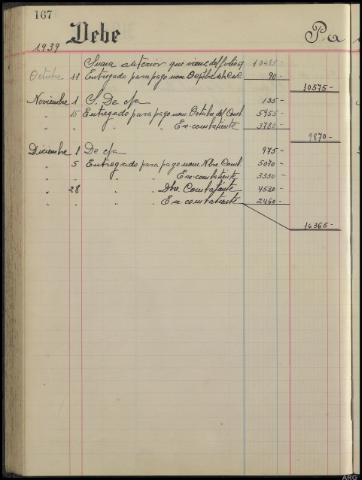 167
Debe
Pa
1939
Suma anterior que viene del folio 10485-
Octubre 18 Entregado para pago nom 90-
10575-
Noviembre 1 S. De c/a 135-
" 15 Entregado para pago nom Octubre del Comb 5955-
" " " Excombatiente 3780-
9870-
Diciembre 1 De c/a 975-
" 5 Entregado para pago nom Nbre Comb 5070-
" " " Excombatiente 3330-
" 28 " " Dbre Combatiente 4530-
" " " Excombatiente 2460-
16365-
ARG